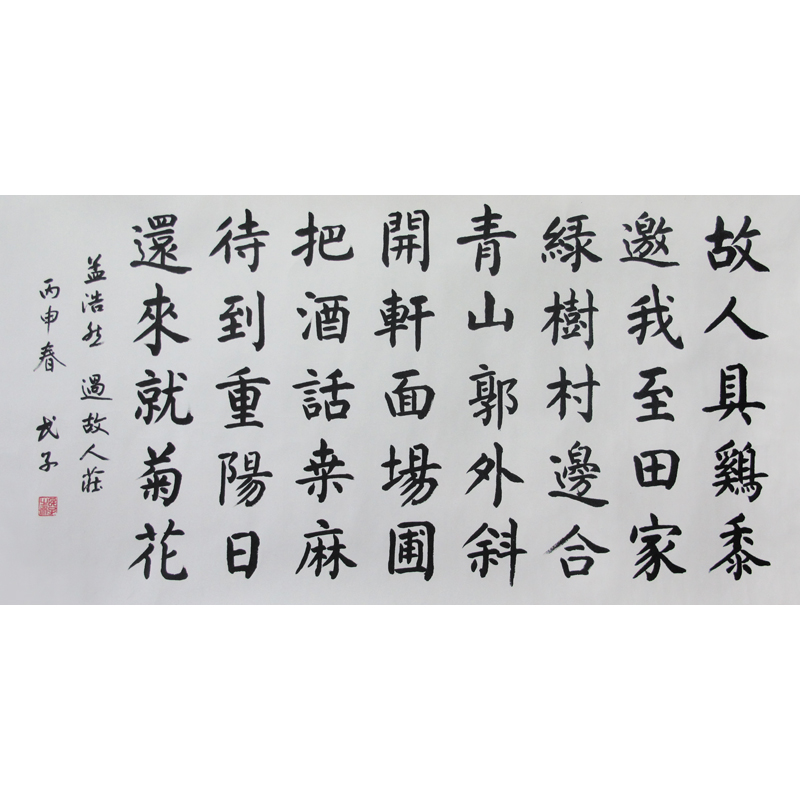 故人具鷄黍
邀我至田家
緑樹村邊合
青山郭外斜
開軒面場圃
把酒話桒麻
待到重陽日
還來就菊花
孟浩然 過故人莊
丙申春